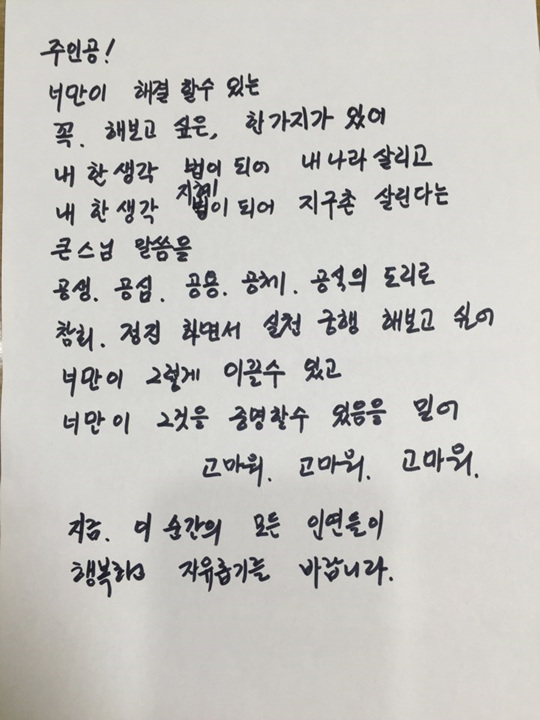 주인공!
너만이 해결 할수 있는
꼭. 해보고 싶은, 한가지가 있어
내 한생각 법이 되어 내나라 살리고
지혜!
내 한생각 법이 되어 지구촌 살린다는
큰스님 말씀을
공생. 공심. 공용. 공체. 공식의 도리로
참회. 정진 하면서 실천 궁행 해보고 싶어
너만이 그렇게 이끌수 있고
너만이 그것을 증명할수 있음을 믿어
고마워. 고마워. 고마워.
지금. 이 순간의 모든 인연들이
행복하고 자유롭기를 바랍니다.